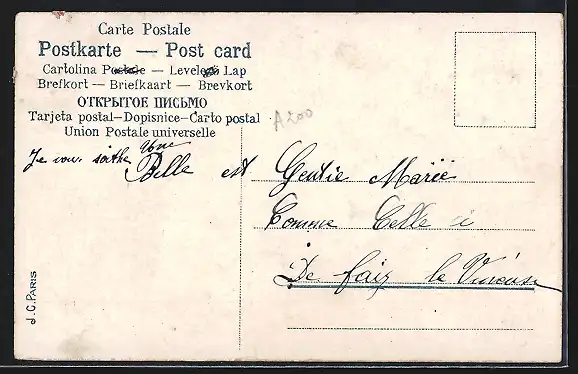 Carte Postale
Postkarte — Post card
Cartolina Postale — Levelező Lap
Brefkort — Briefkaart — Brevkort
ОТКРЫТОЕ ПИСЬМО
Tarjeta postal—Dopisnice—Carto postal
Union Postale universelle
A200
Je vou. soithe Une Belle est Gentie Mariè
Comme Celle i
De faiz le
J.C. PARIS